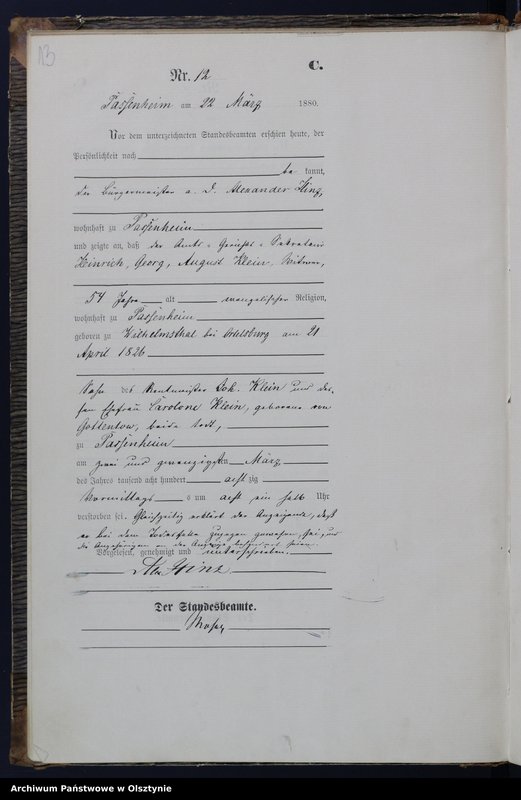 13
C.
Nr. 12
Passenheim am 22 März 1880.
Vor dem unterzeichneten Standesbeamten erschien heute, der
Persönlichkeit nach
be kannt,
der Bürgermeister a. D. Alexander
wohnhaft zu Passenheim
und zeigte an, daß der Amts-Gerichts-Sekretair
Heinrich, Georg, August Klein, Witwer,
54 Jahre alt evangelischer Religion,
wohnhaft zu Passenheim
geboren zu Wilhelmsthal bei Ortelsburg am 21
April 1826
Sohn des Rentmeister Joh. Klein und des-
sen Ehefrau Carolone Klein, geborene von
beide todt,
zu Passenheim
am zwei und zwanzigsten März
des Jahres tausend acht hundert acht zig
Vormittags um acht ein halb Uhr
verstorben sei. Gleichzeitig erklärt der Anzeigende, daß
er bei dem Todesfalle zugegen gewesen sei, und
die Angehörigen an der Anzeige behindert seien.
Vorgelesen, genehmigt und unterschrieben.
Der Standesbeamte.
Archiwum Państwowe w Olsztynie